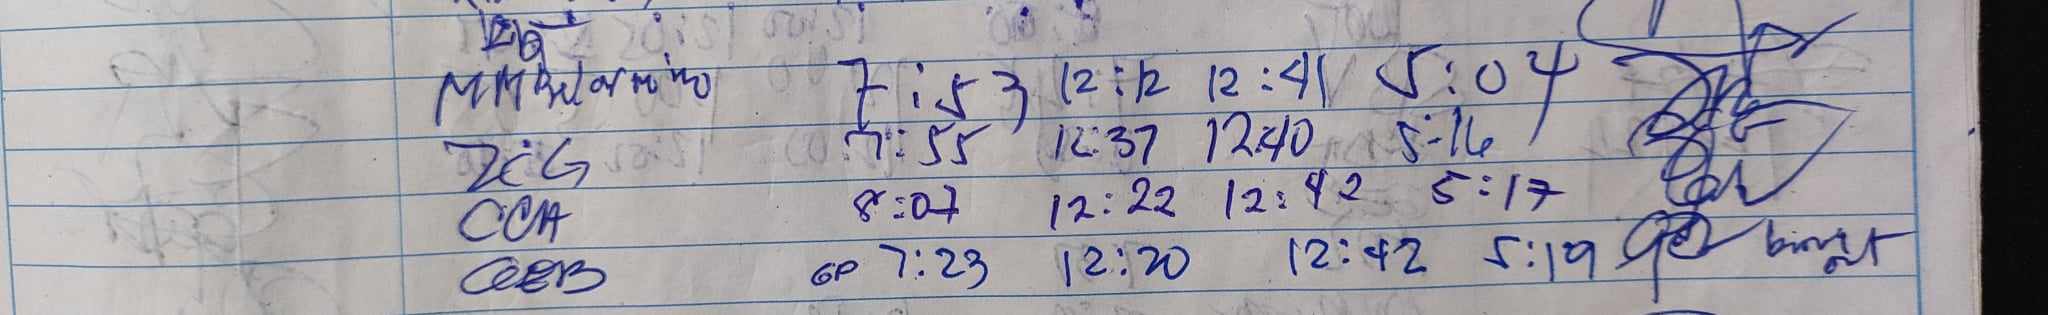 MMBelarmino 7:53 12:12 12:41 5:04
ZCG 7:55 12:37 12:40 5:16
CCA 8:07 12:22 12:42 5:17
GEB GP 7:23 12:20 12:42 5:19